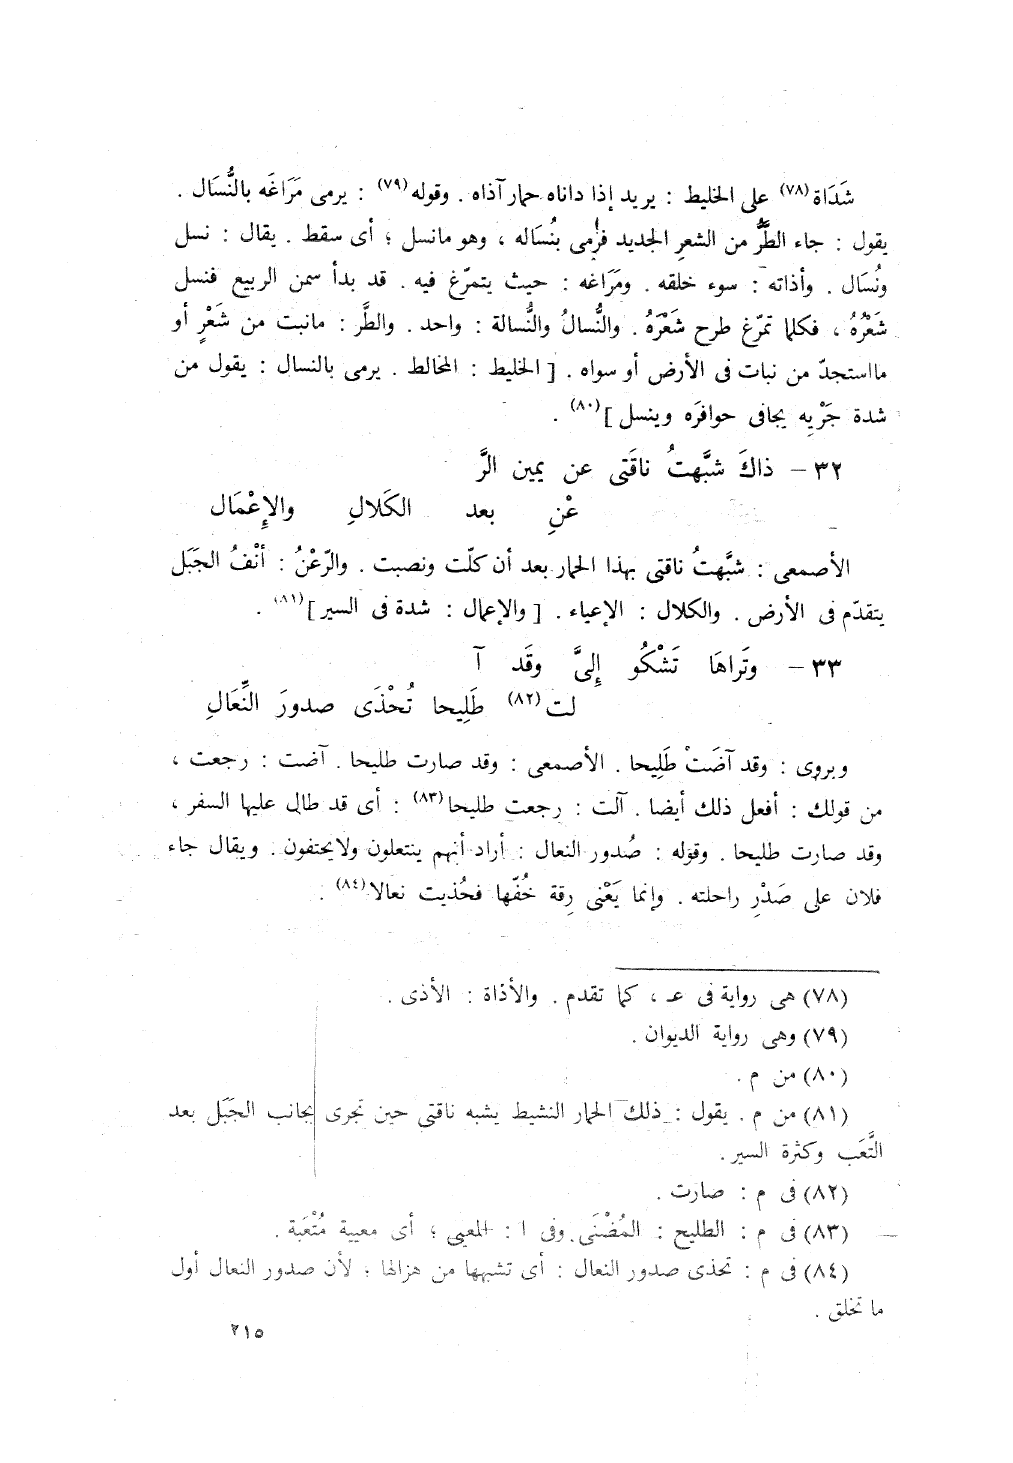 شَدَاة(٧٨) على الخليط : يريد إذا داناه حمار آذاه . وقوله(٧٩) : يرمى مَرَاغَه بالنُّسَال .
يقول : جاء الطَّرُّ من الشعرِ الجديد فرُمى بنُسَاله ، وهو مانسل ؛ أى سقط . يقال : نسل
ونُسَال . وأذاته : سوء خلقه . ومَرَاغه : حيث يتمرّغ فيه . قد بدأ سمن الربيع فنسل
شَعْرُهُ ، فكلما تمرّغ طرح شَعْرَهُ . والنُّسالُ والنُّسالة : واحد . والطَّر : مانبت من شَعْرٍ أو
مااستجدّ من نبات فى الأرض أو سواه . [ الخليط : المخالط . يرمى بالنسال : يقول من
شدة جَرْيِه يجافى حوافرَه وينسل ](٨٠) .
٣٢ – ذاكَ شبَّهتُ ناقَتى عن يمين الرَّ
عْنِ بعد الكَلالِ والإعْمَال
الأصمعى : شبَّهتُ ناقتى بهذا الحمار بعد أن كلّت ونصبت . والرّعْنُ : أنْفُ الجَبَل
يتقدّم فى الأرض . والكلال : الإعياء . [ والإعمال : شدة فى السير ](٨١) .
٣٣ – وتَراهَا تَشْكُو إلىَّ وقَد آ
لت(٨٢) طَلِيحا تُحْذَى صدورَ النِّعَالِ
ويروى : وقد آضَتْ طَلِيحا . الأصمعى : وقد صارت طليحا . آضت : رجعت ،
من قولك : أفعل ذلك أيضا . آلت : رجعت طليحا(٨٣) : أى قد طال عليها السفر ،
وقد صارت طليحا . وقوله : صُدور النعال : أراد أنهم ينتعلون ولايحتفون . ويقال جاء
فلان على صَدْرِ راحلته . وإنما يَعْنى رِقة خُفّها فحُذيت نعالا(٨٤) .
(٧٨) هى رواية فى عـ ، كما تقدم . والأذاة : الأذى .
(٧٩) وهى رواية الديوان .
(٨٠) من م .
(٨١) من م . يقول : ذلك الحمار النشيط يشبه ناقتى حين تجرى بجانب الجَبَل بعد
التَّعَب وكثرة السير .
(٨٢) فى م : صارت .
(٨٣) فى م : الطليح : المُضْنَى . وفى ا : المعيى ؛ أى معيية مُتْعَبة .
(٨٤) فى م : تحذى صدور النعال : أى تشبهها من هزالها ؛ لأن صدور النعال أول
ما تخلق .
٢١٥